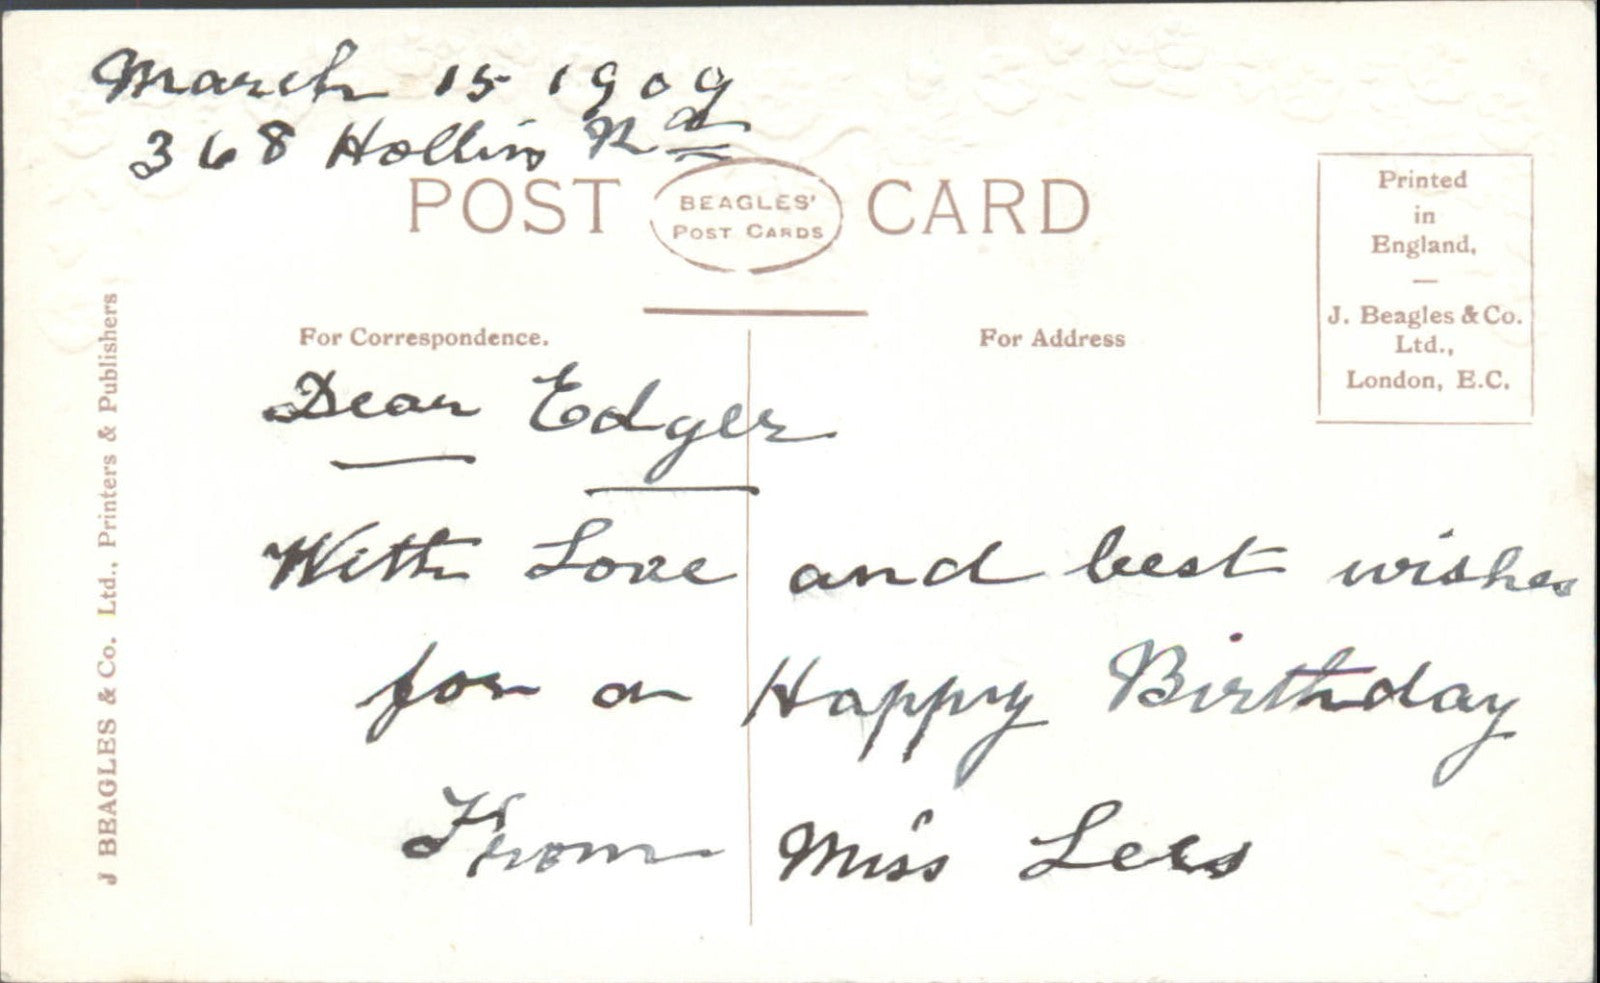 March 15 1909
368 Hollins Rd
POST CARD
BEAGLES'
POST CARDS
Printed
in
England,
J. Beagles & Co.
Ltd.,
London, E.C.
J BEAGLES & Co. Ltd., Printers & Publishers
For Correspondence.
For Address
Dear Edger
With Love and best wishes
for a Happy Birthday
From Miss Lees